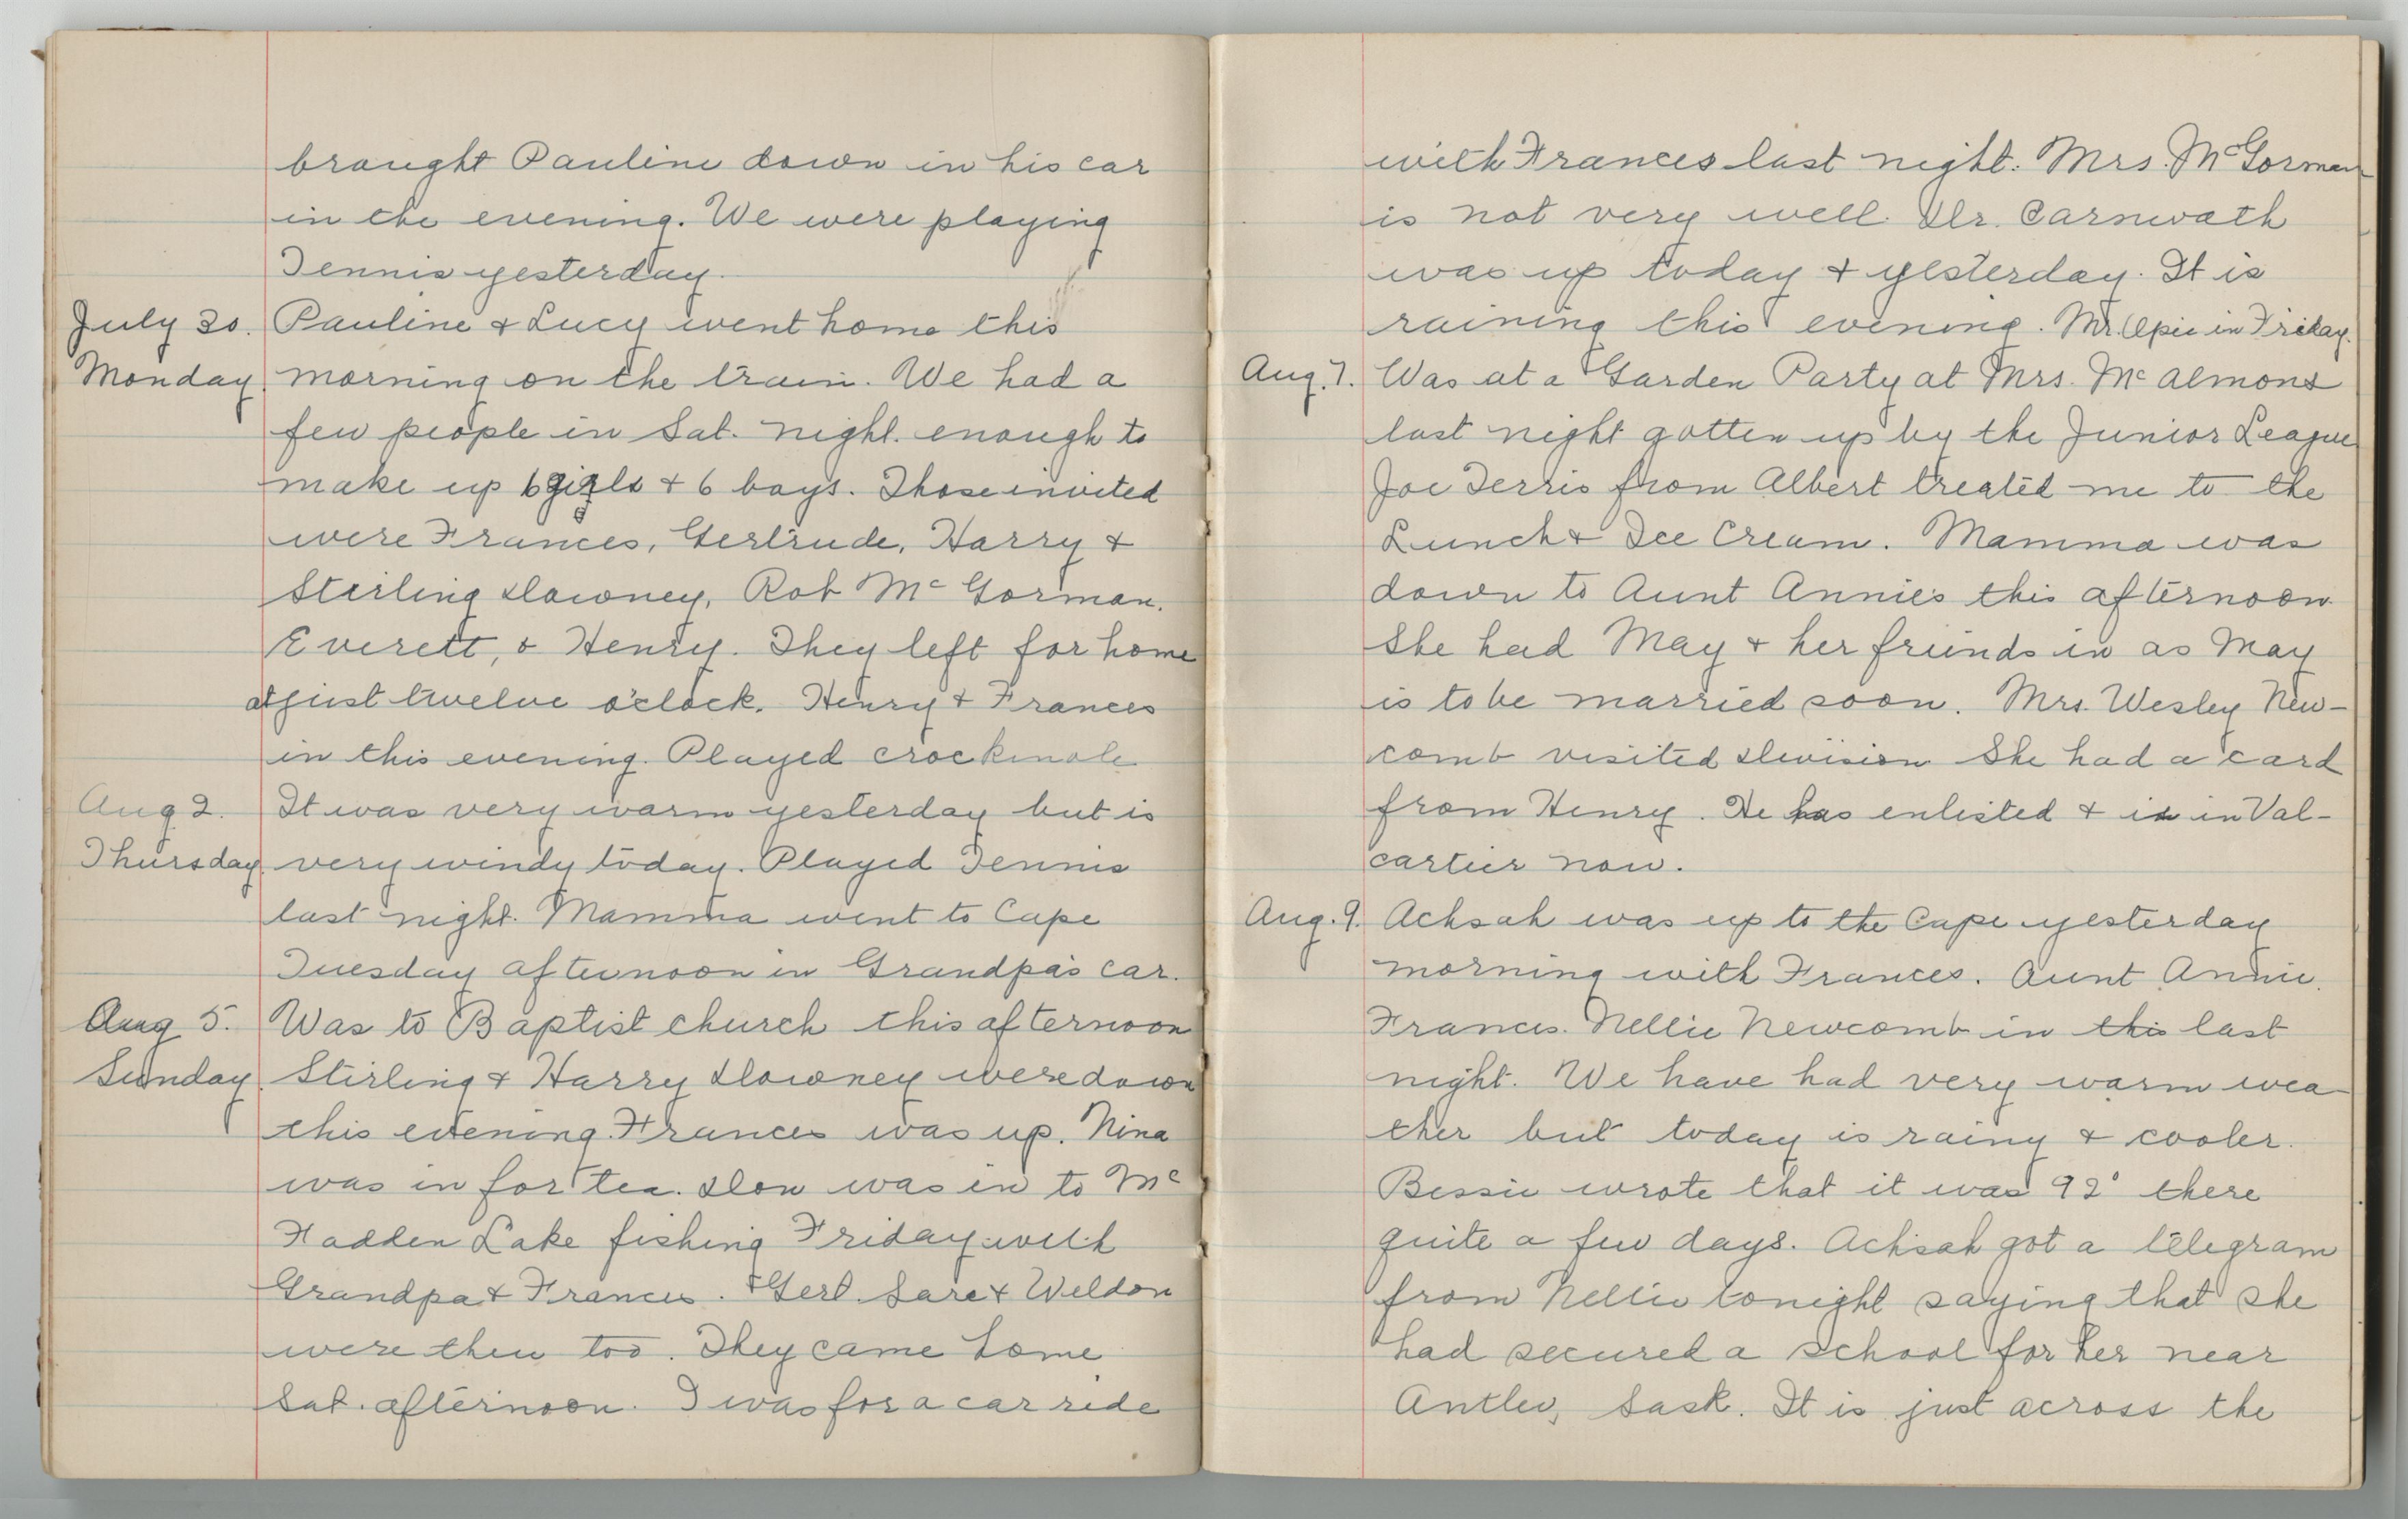 brought Pauline down in his car
in the evening. We were playing
Tennis yesterday.
July 30. Pauline & Lucy went home this
Monday. morning on the train. We had a
few people in Sat. night. enough to
make up 6 girls & 6 boys. Those invited
were Frances, Gertrude, Harry &
Stirling Downey, Rob Mc Gorman.
Everett, & Henry. They left for home
at just twelve o'clock. Henry & Frances
in this evening. Played crockinole
Aug 2. It was very warm yesterday but is
Thursday. very windy today. Played Tennis
last night. Mamma went to Cape
Tuesday afternoon in Grandpa's car.
Aug 5. Was to Baptist church this afternoon
Sunday. Stirling & Harry Downey were down
this evening. Frances was up. Nina
was in for tea. Don was in to Mc
Fadden Lake fishing Friday with
Grandpa & Frances. & Gert. Sare & Weldon
were then too. They came home
Sat. afternoon. I was for a car ride
with Frances last night. Mrs. McGorman
is not very well. Dr. Carnwath
was up today & yesterday. It is
raining this evening. Mr. Opie in Friday.
Aug. 7. Was at a Garden Party at Mrs. Mc Almons
last night gotten up by the Junior League
Joe Terris from Albert treated me to the
Lunch & Ice Cream. Mamma was
down to Aunt Annie's this afternoon
She had May & her friends in as May
is to be married soon. Mrs. Wesley New-
comb visited Division She had a card
from Henry. He has enlisted & is in Val-
cartier now.
Aug. 9. Achsah was up to the Cape yesterday
morning with Frances. Aunt Annie.
Frances. Nellie Newcomb in this last
night. We have had very warm wea
ther but today is rainy & cooler.
Bessie wrote that it was 92° there
quite a few days. Achsah got a telegram
from Nellie tonight saying that she
had secured a school for her near
Antler, Sask. It is just across the